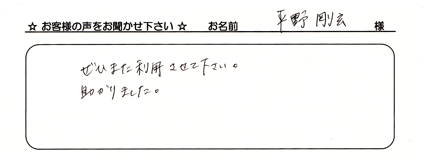 ☆ お客様の声をお聞かせ下さい ☆ お名前 平野 剛玄 様
ぜひまた利用させて下さい。
助かりました。